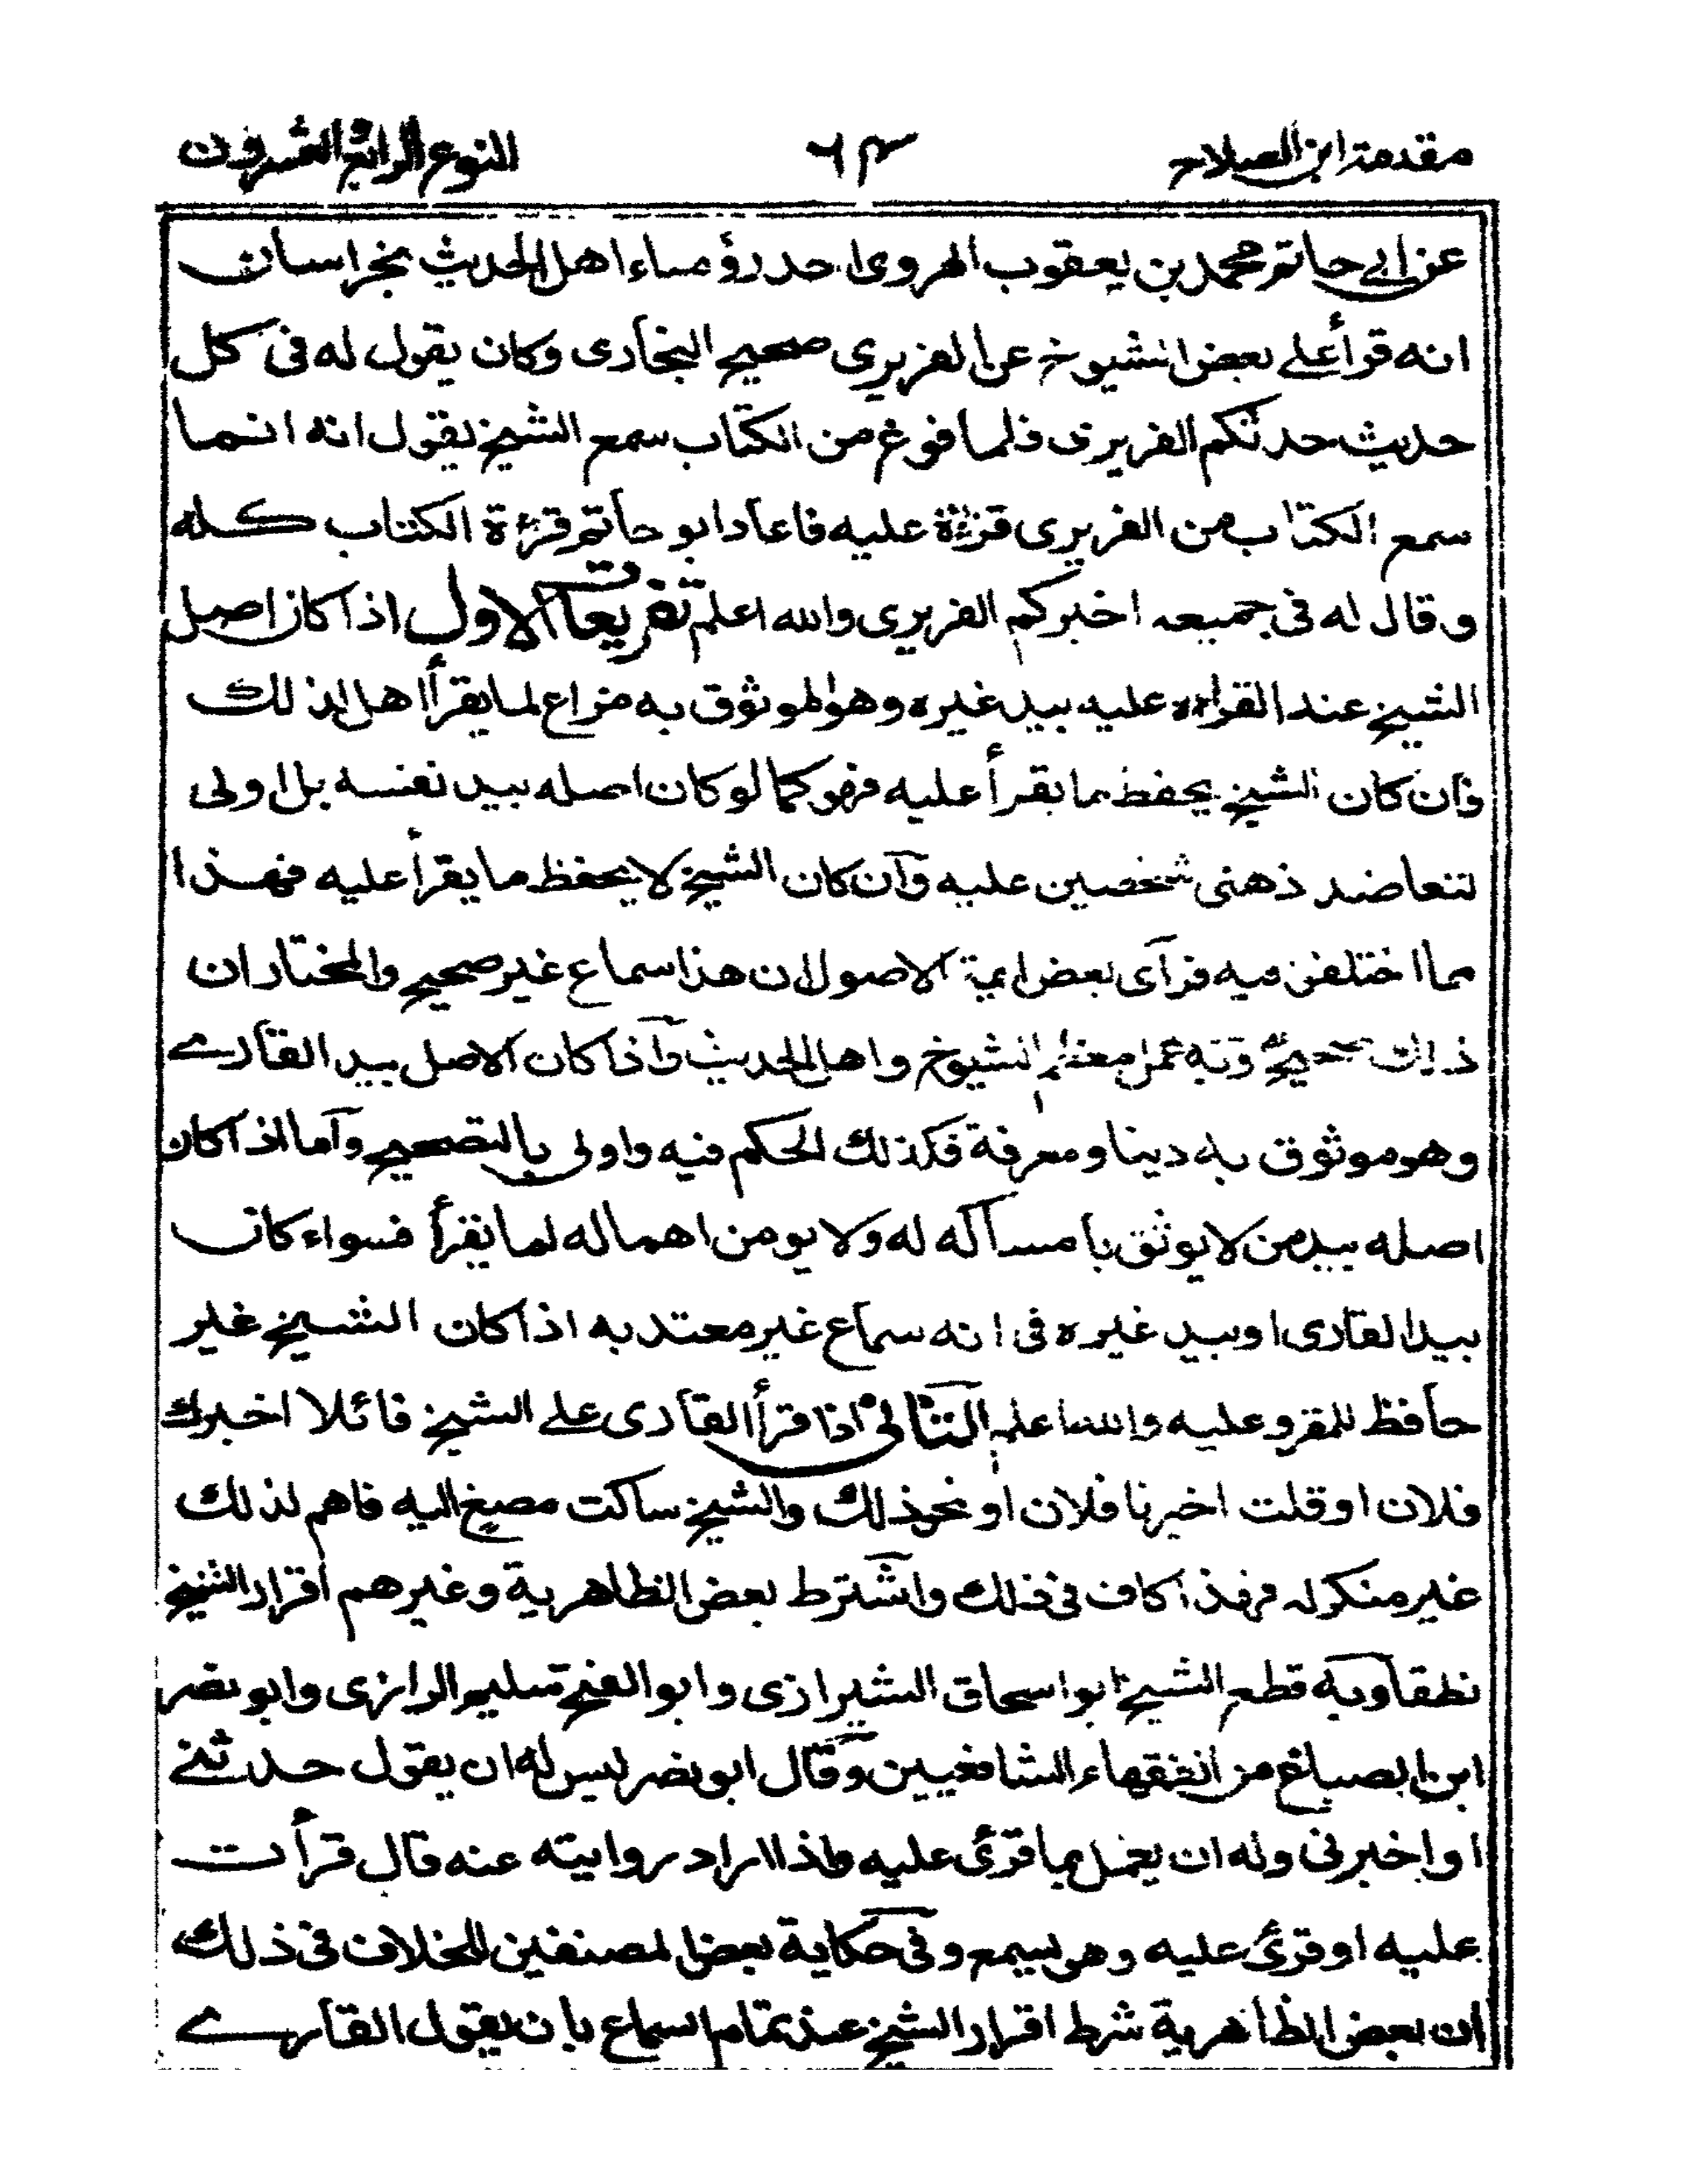 مقدمة ابن الصلاح ٦٣ النوع الرابع والعشرون
عن ابي حاتم محمد بن يعقوب الهروى احد رؤساء اهل الحديث بخراسان
انه قرأ على بعض الشيوخ عن الفربرى صحيح البخارى وكان يقول له فى كل
حديث حدثكم الفربرى فلما فرغ من الكتاب سمع الشيخ يقول انه انما
سمع الكتاب من الفربرى قرئة عليه فاعاد ابو حاتم قرءة الكتاب كله
وقال له فى جميعه اخبركم الفربرى والله اعلم تفريعات الاول اذا كان اصل
الشيخ عند القراءه عليه بيد غيره وهو الموثوق به مراع لما يقرأ اهل لذلك
فان كان الشيخ يحفظ ما يقرأ عليه فهو كما لو كان اصله بيد نفسه بل اولى
لتعاضد ذهنى شخصين عليه وان كان الشيخ لا يحفظ ما يقرأ عليه فهذا
مما اختلفن فيه فرآى بعض ايمة الاصول ان هذا سماع غير صحيح والمختار ان
ذلك صحيح وبه عمل معظم الشيوخ واهل الحديث واذا كان الاصل بيد القارے
وهو موثوق به دينا ومعرفة فكذلك الحكم فيه واولى بالتصحيح واما اذا كان
اصله بيد من لا يوثق بامساكه له ولا يومن اهماله لما يقرأ فسواء كان
بيد القارى او بيد غيره فى انه سماع غير معتد به اذا كان الشيخ غير
حافظ للمقرو عليه والله اعلم الثانى اذا قرأ القارى على الشيخ قائلا اخبرك
فلان او قلت اخبرنا فلان او نحو ذلك والشيخ ساكت مصيغ اليه فاهم لذلك
غير منكر له فهذا كاف فى ذلك واشترط بعض الظاهرية وغيرهم اقرار الشيخ
نطقا وبه قطع الشيخ ابو اسحاق الشيرازى وابو الفتح سليم الرازى وابو نصر
ابن الصباغ من الفقهاء الشافعيين وقال ابو نصر ليس له ان يقول حدثنے
او اخبرنى وله ان يعمل بما قرئ عليه واذا اراد روايته عنه قال قرأت
عليه او قرئ عليه وهو يسمع وفى حكاية بعض المصنفين للخلاف فى ذلك
ان بعض الظاهرية شرط اقرار الشيخ عند تمام السماع بان يقول القارے